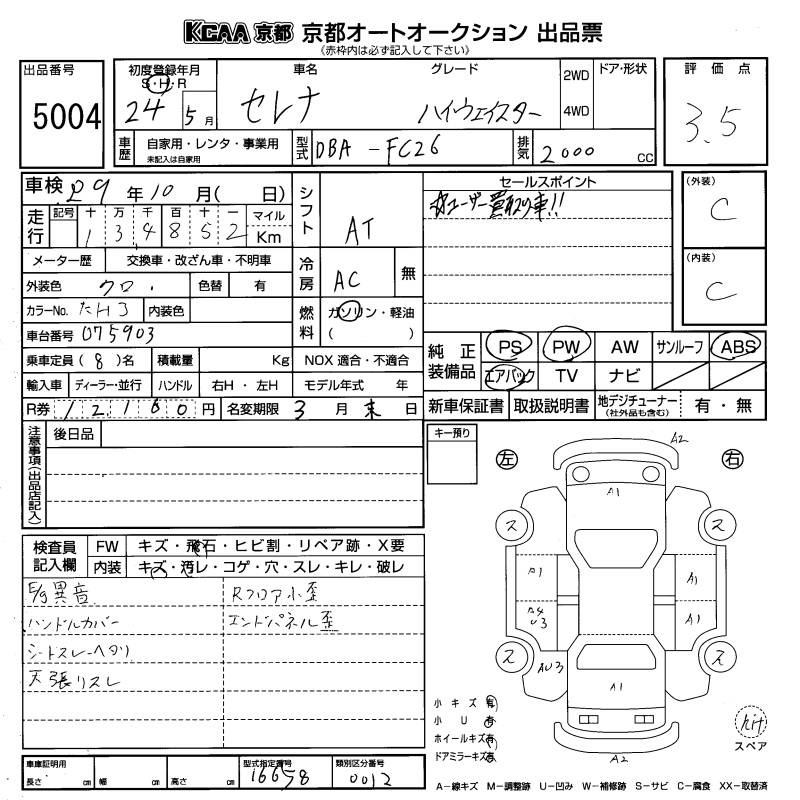 KCAA 京都 京都オートオークション 出品票
(赤枠内は必ず記入して下さい)
出品番号
5004
初度登録年月 車名 グレード
S・H・R
24 5月 セレナ ハイウェイスター
2WD
4WD
ドア・形状
評価点
3.5
車歴 自家用・レンタ・事業用
未記入は自家用
型式 DBA-FC26
排気 2000 CC
車検 29年10月( 日)
走行 記号 十 万 千 百 十 一 マイル
1 3 4 8 5 2 Km
シフト AT
メーター歴 交換車・改ざん車・不明車
冷房 AC 無
外装色 クロ 色替 有
カラーNo. 内装色
燃料 ガソリン・軽油
( )
車台番号 075903
乗車定員(8)名 積載量 Kg NOX 適合・不適合
輸入車 ディーラー・並行 ハンドル 右H・左H モデル年式 年
R券 12,160円 名変期限 3月末日
セールスポイント
ユーザー買取り車!!
(外装)
C
(内装)
C
純正装備品 PS PW AW サンルーフ ABS
エアバック TV ナビ
新車保証書 取扱説明書 地デジチューナー 有・無
(社外品も含む)
注意事項(出品店記入)
後日品
キー預り
左 右
検査員記入欄 FW キズ・飛石・ヒビ割・リペア跡・X要
内装 キズ・汚レ・コゲ・穴・スレ・キレ・破レ
E/g異音 Rフロア小歪
ハンドルカバー エンドパネル歪
シートスレ・ヘタリ
天張リスレ
A2
A1
ス ス
A1 A1
A4
U3
A1
ス ス
AU3
A1
A2
小キズ 有
小U 有
ホイールキズ 有
ドアミラーキズ 有
スペア
車庫証明用
長さ cm 幅 cm 高さ cm
型式指定番号 16658
類別区分番号 0012
A−線キズ M−調整跡 U−凹み W−補修跡 S−サビ C−腐食 XX−取替済